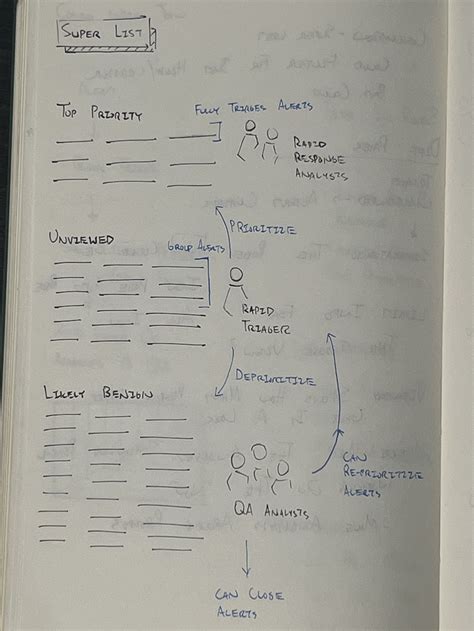 SUPER LIST
TOP PRIORITY
FULLY TRIAGES ALERTS
RAPID
RESPONSE
ANALYSTS
PRIORITIZE
UNVIEWED
GROUP ALERTS
RAPID
TRIAGER
DEPRIORITIZE
LIKELY BENIGN
CAN
RE-PRIORITIZE
ALERTS
QA ANALYSTS
CAN CLOSE
ALERTS